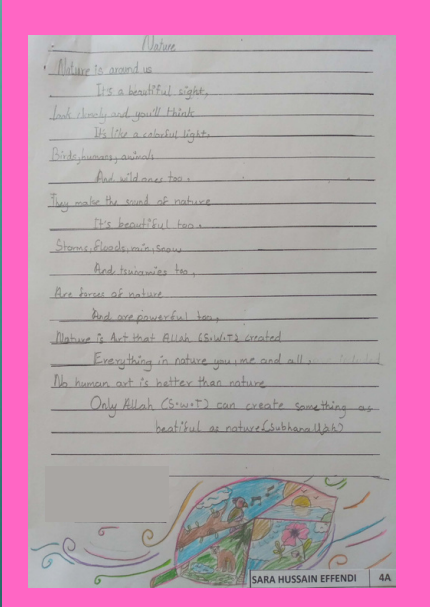 Nature
Nature is around us
It's a beautiful sight,
Look closely and you'll think
It's like a colorful light.
Birds, humans, animals
And wild ones too,
They make the sound of nature
It's beautiful too.
Storms, floods, rain, snow
And tsunamies too,
Are forces of nature
And are powerful too,
Nature is Art that Allah (S.W.T) created
Everything in nature you, me and all.
No human art is better than nature
Only Allah (S.W.T) can create something as
beatiful as nature(Subhana.llah)
SARA HUSSAIN EFFENDI
4A